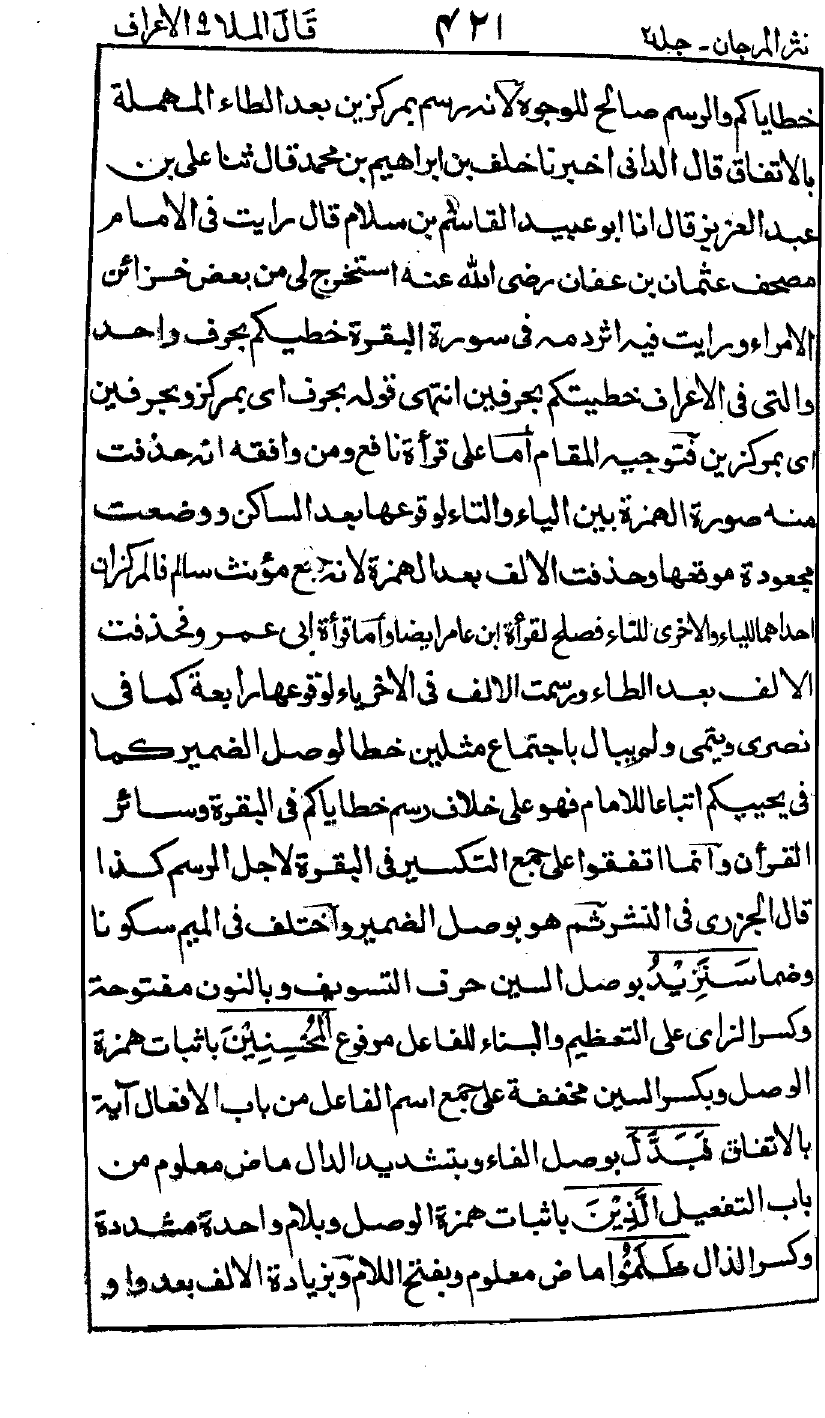 نثر المرجان - جلد ٢ ٤٢١ قَالَ الملا ٩ الاعراف
خطاياكم والرسم صالح للوجوه لانه رسم بمركزين بعد الطاء المهملة
بالاتفاق قال الدانى اخبرنا خلف بن ابراهيم بن محمد قال ثنا على بن
عبد العزيز قال انا ابو عبيد القاسم بن سلام قال رايت فى الامام
مصحف عثمان بن عفان رضى الله عنه استخرج لى من بعض خزائن
الامراء ورايت فيه اثر دمه فى سورة البقرة خطيكم بحرف واحد
والتى فى الاعراف خطيتكم بحرفين انتهى قوله بحرف اى بمركز وبحرفين
اى بمركزين فتوجيه المقام أما على قرأة نافع ومن وافقه انه حذفت
منه صورة الهمزة بين الياء والتاء لوقوعها بعد الساكن ووضعت
مجعودة موقعها وحذفت الالف بعد الهمزة لانه جمع مؤنث سالم فالمركزان
احداهما للياء والاخرى للتاء فصلح لقرأة ابن عامر ايضا وأما قرأة ابى عمرو فحذفت
الالف بعد الطاء ورسمت الالف فى الاخر ياء لوقوعها رابعة كما فى
نصرى ويتمى ولم يبال باجتماع مثلين خطا لوصل الضمير كما
فى يحييكم اتباعا للامام فهو على خلاف رسم خطاياكم فى البقرة وسائر
القرأن وانما اتفقوا على جمع التكسير فى البقرة لاجل الرسم كذا
قال الجزرى فى النشر ثم هو بوصل الضمير واختلف فى الميم سكونا
وضما سَنَزِيْدُ بوصل السين حرف التسويف وبالنون مفتوحة
وكسر الزاى على التعظيم والبناء للفاعل مرفوع الْمُحْسِنِيْنَ باثبات همزة
الوصل وبكسر السين مخففة على جمع اسم الفاعل من باب الافعال آية
بالاتفاق فَبَدَّلَ بوصل الفاء وبتشديد الدال ماض معلوم من
باب التفعيل الَّذِيْنَ باثبات همزة الوصل وبلام واحدة مشددة
وكسر الذال ظَلَمُوْا ماض معلوم وبفتح اللام وبزيادة الالف بعد واو